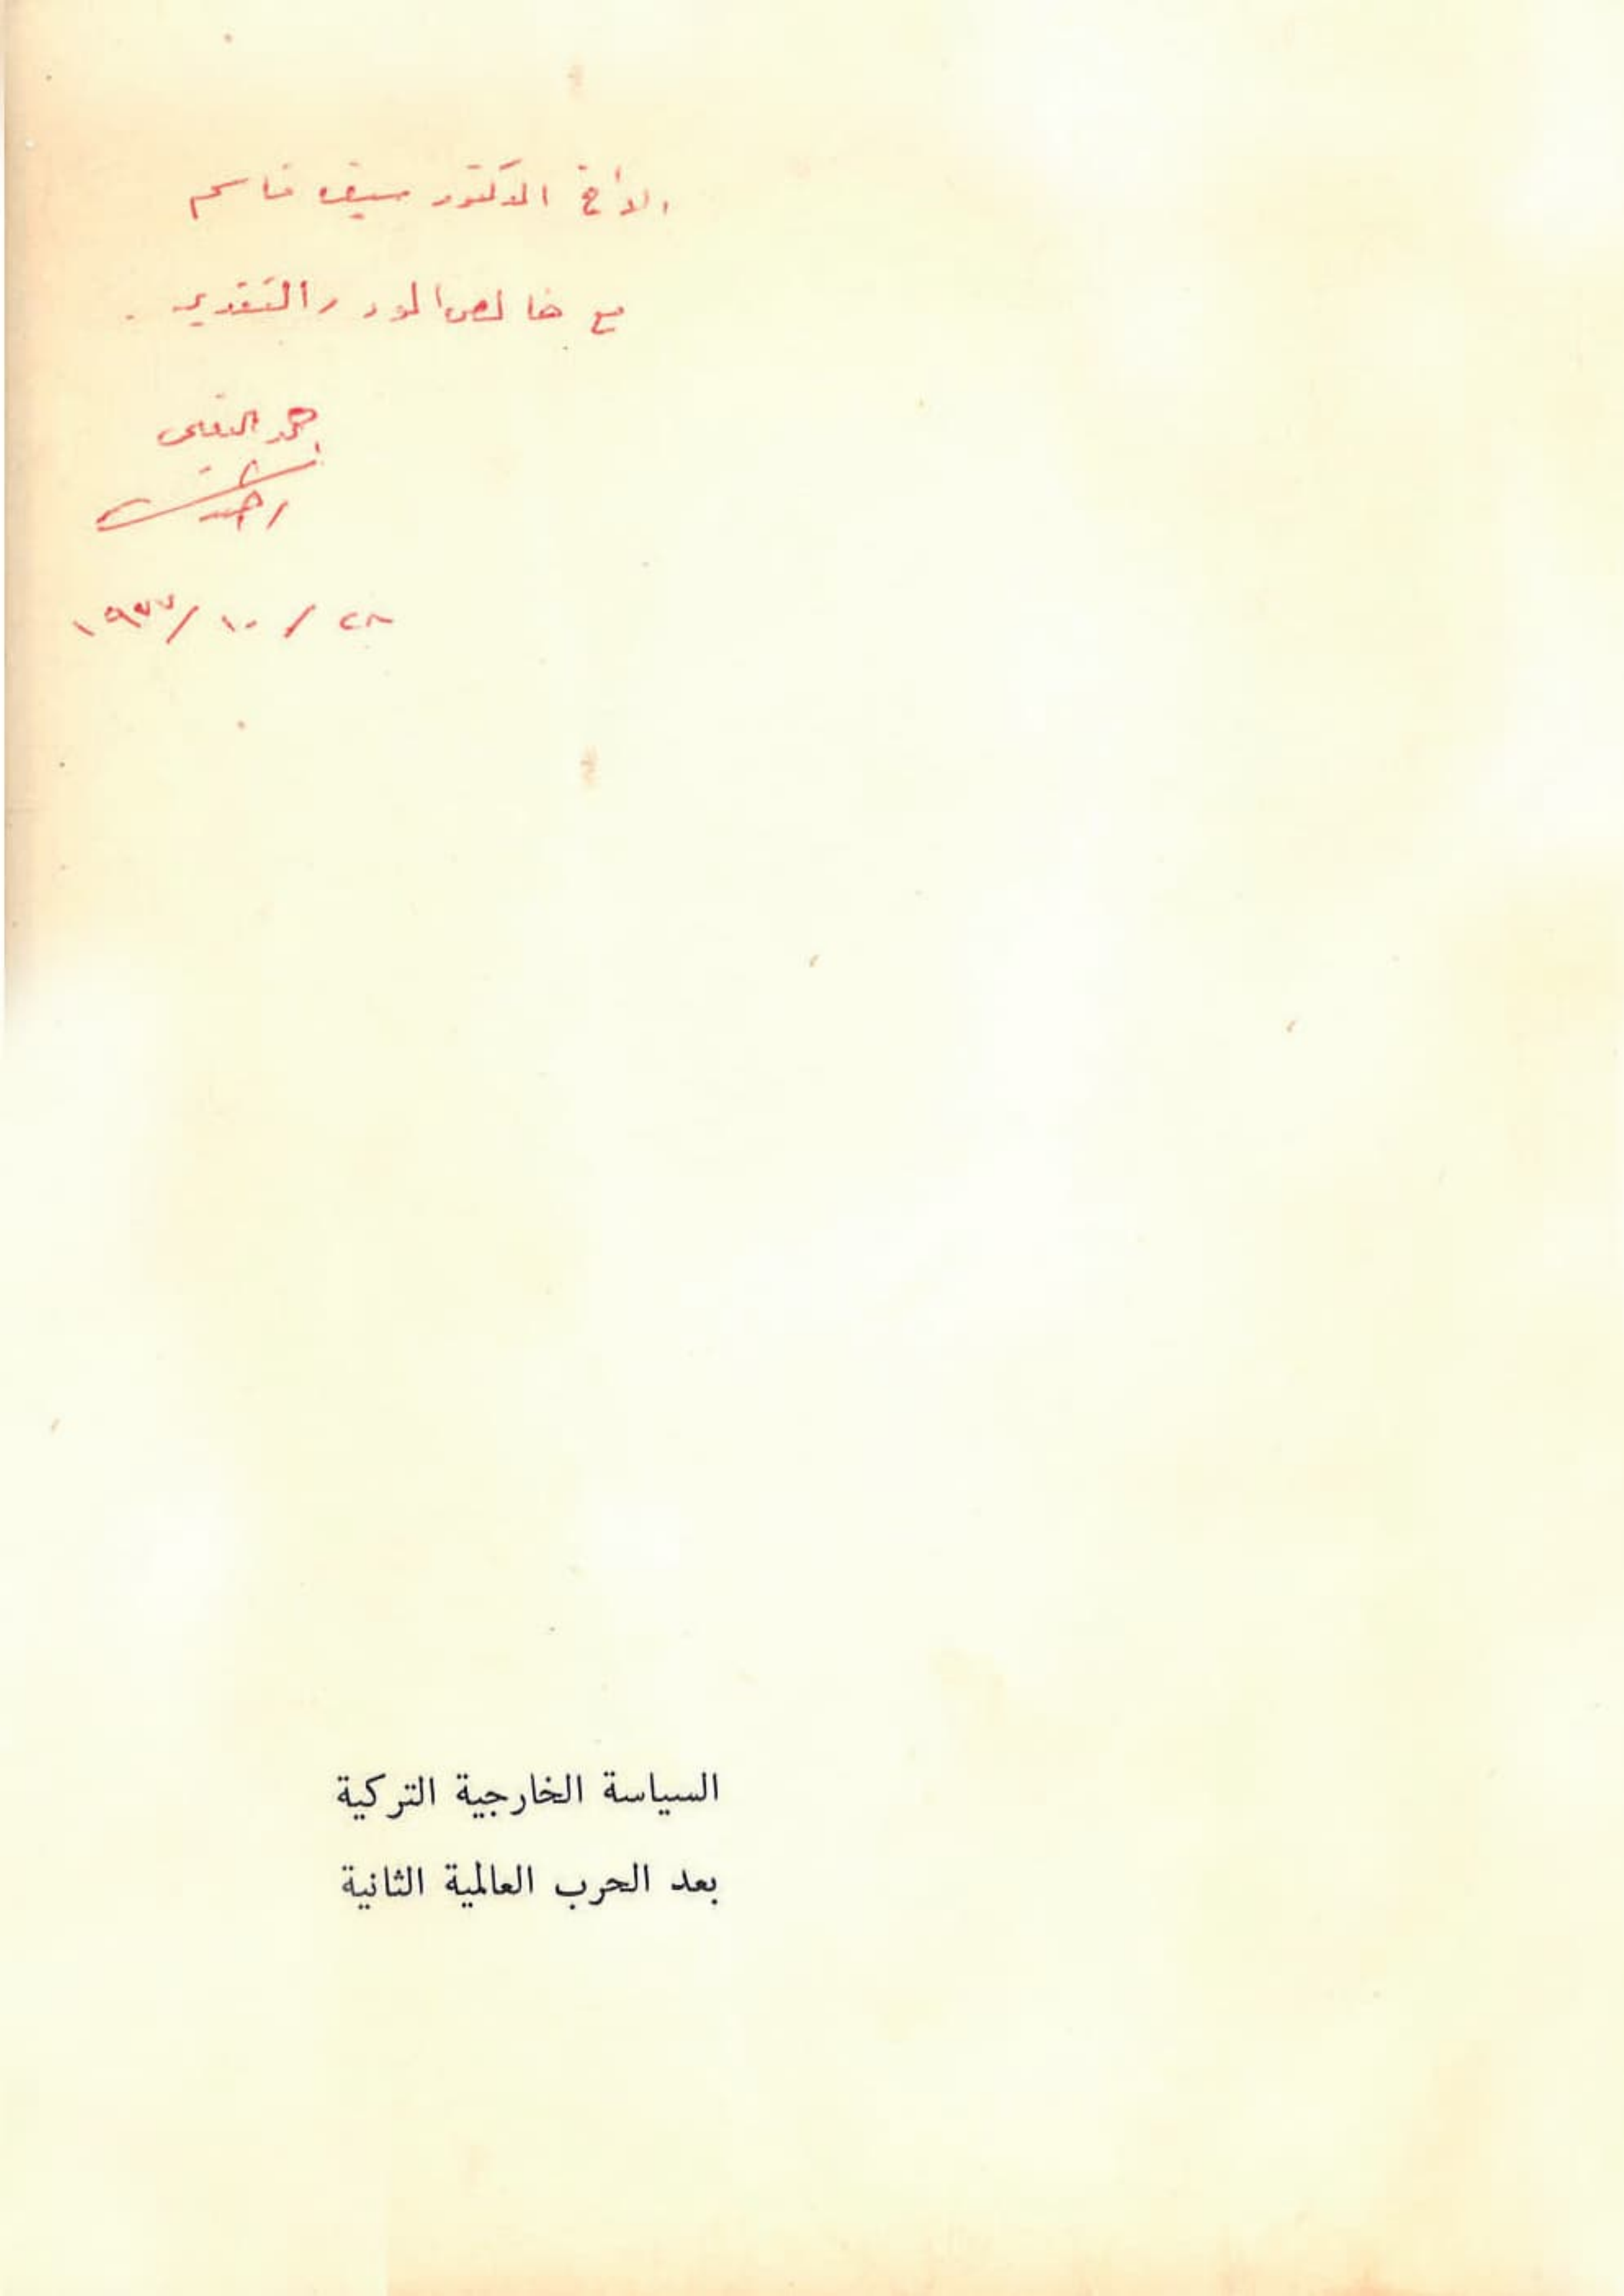 الأخ الدكتور سيف قاسم
مع خالص الود والتقدير .
احمد
٢٨ / ١٠ / ١٩٧٧
السياسة الخارجية التركية
بعد الحرب العالمية الثانية